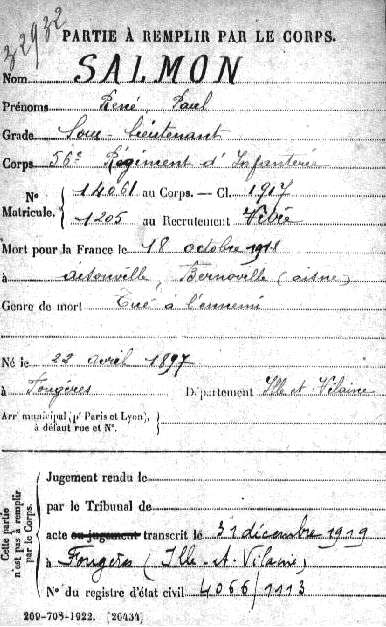 32932
PARTIE À REMPLIR PAR LE CORPS.
Nom SALMON
Prénoms René Paul
Grade Sous-Lieutenant
Corps 56e Régiment d'Infanterie
Nº Matricule. { 14061 au Corps. — Cl. 1917
1205 au Recrutement Vitré
Mort pour la France le 18 octobre 1918
à Bernoville (aisne)
Genre de mort Tué à l'ennemi
Né le 22 avril 1897
à Fougères Département Ille et Vilaine
Arrt municipal (pr Paris et Lyon), à défaut rue et Nº. }
Cette partie n'est pas à remplir par le Corps.
Jugement rendu le
par le Tribunal de
acte ou jugement transcrit le 31 décembre 1919
à Fougères (Ille-et-Vilaine)
Nº du registre d'état civil 4066/1113
269-708-1922. (26434)